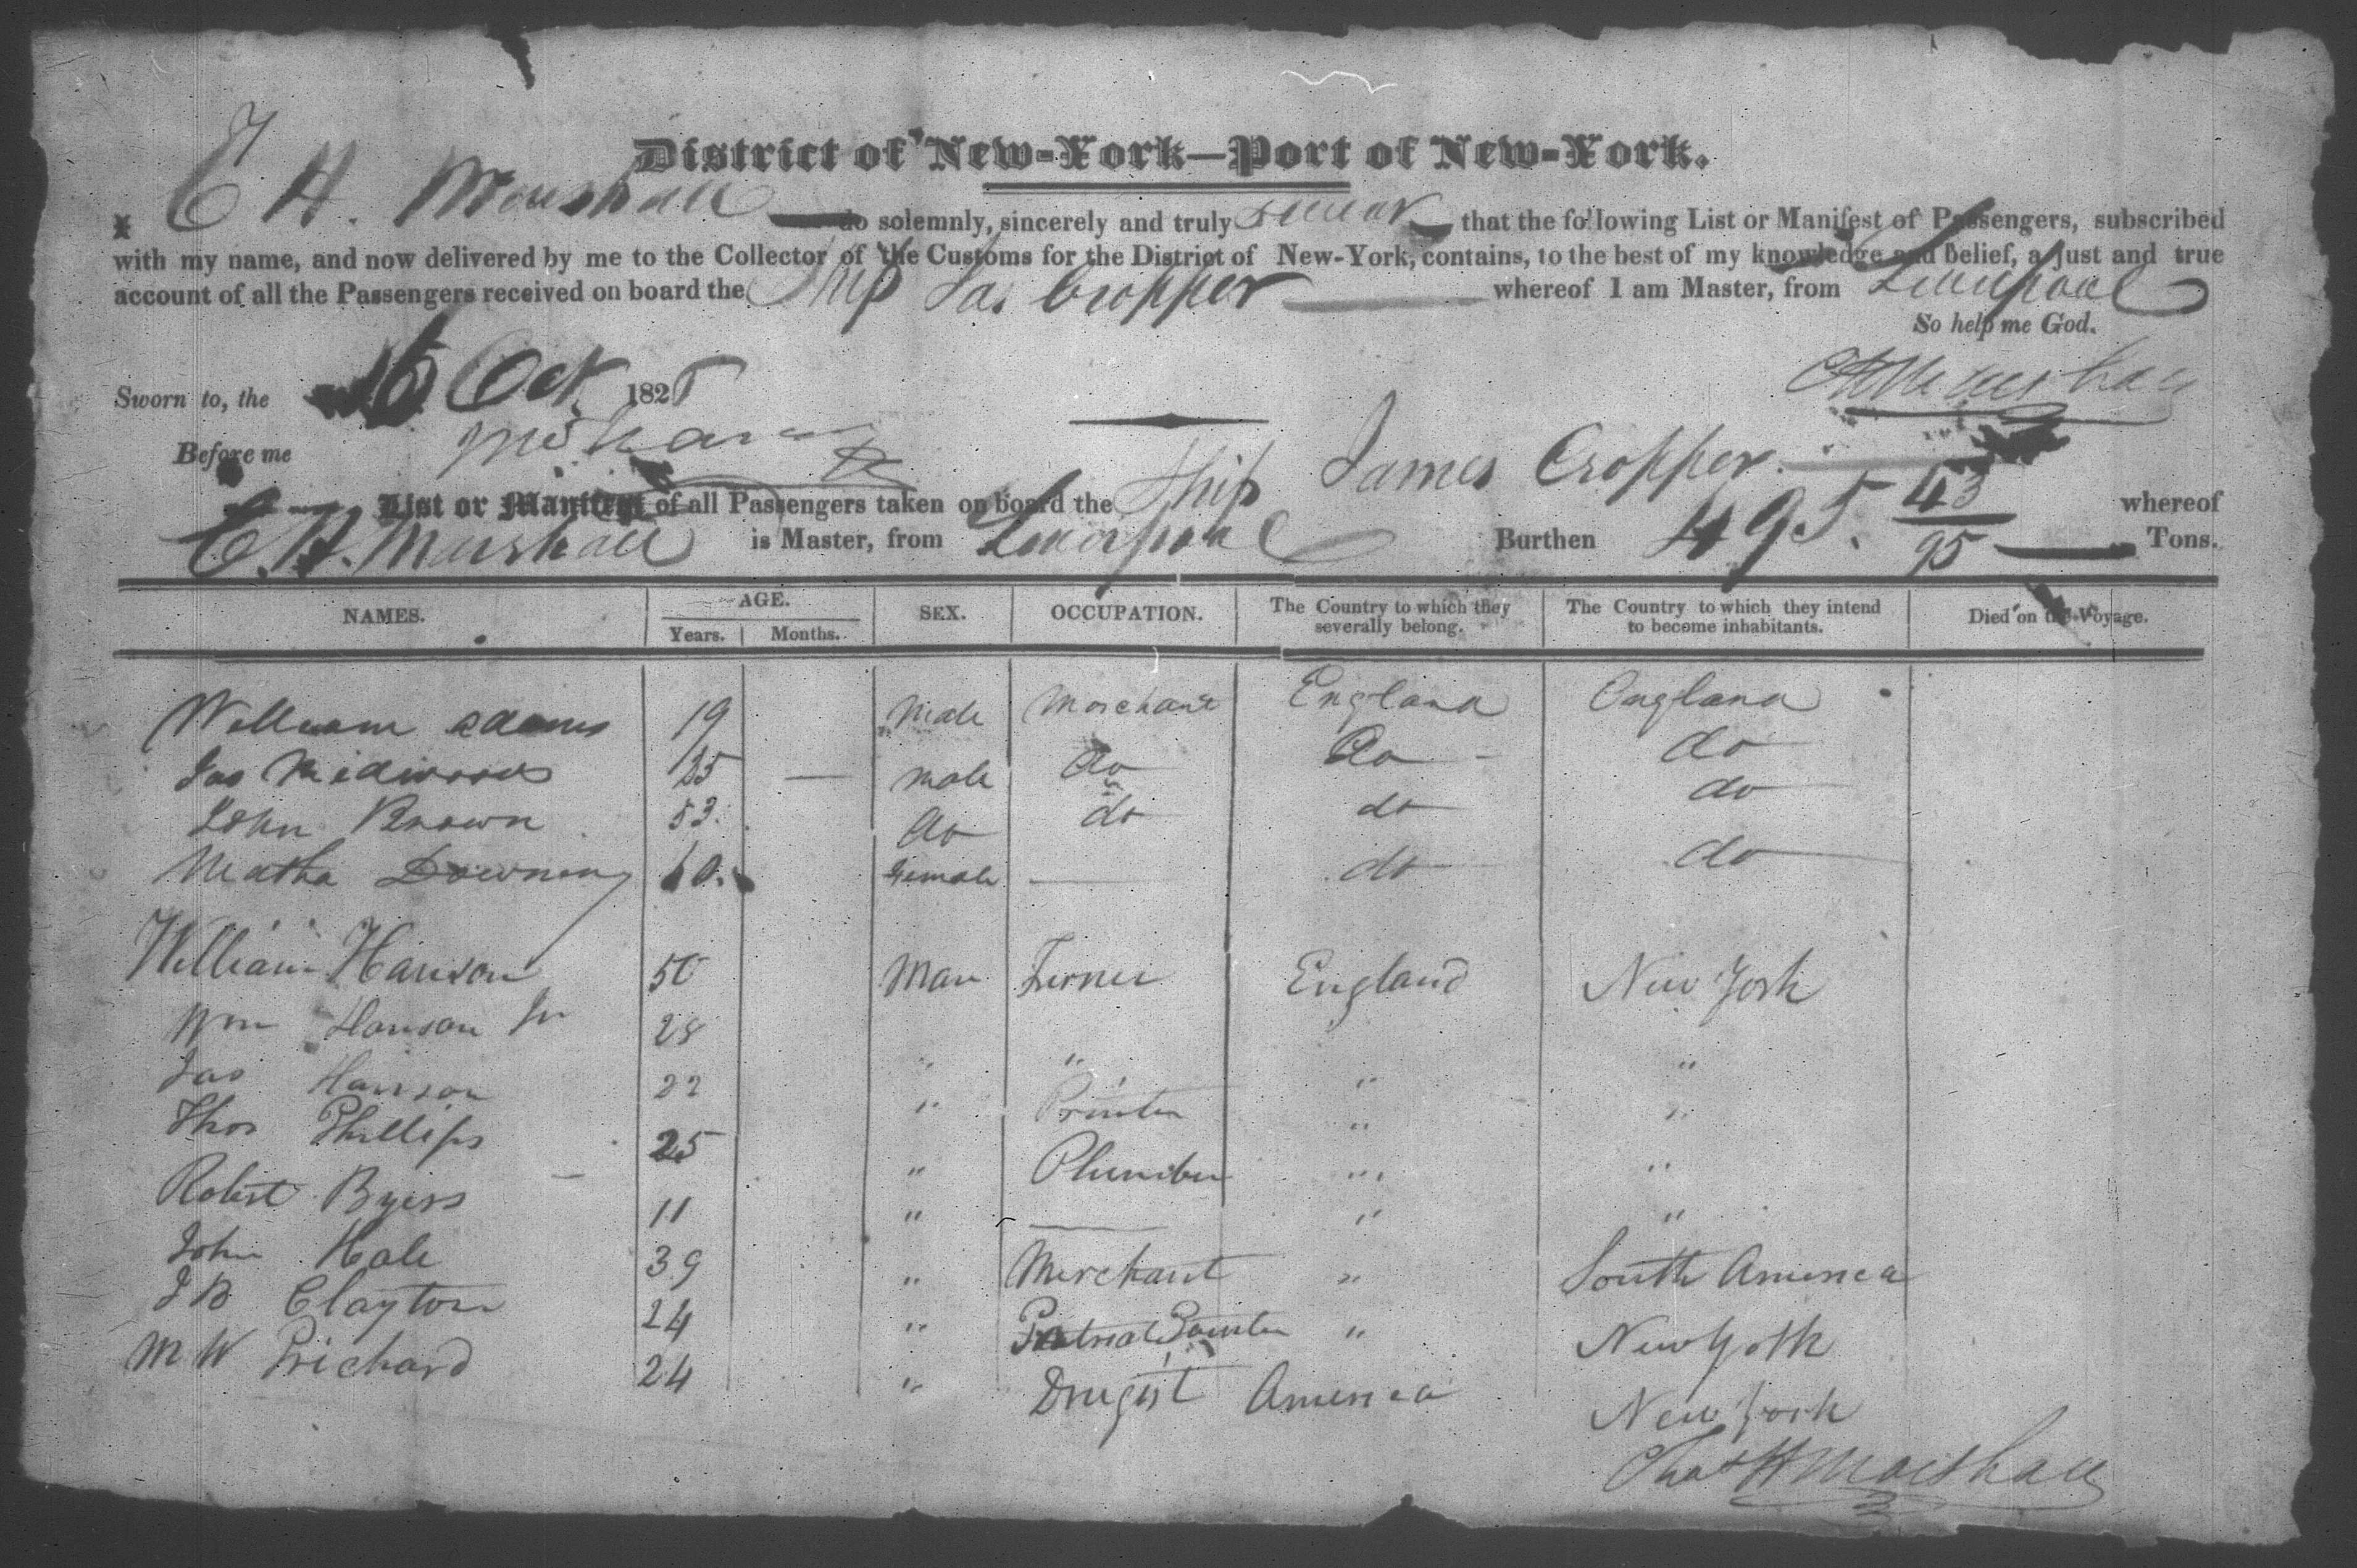 District of New-York—Port of New-York.
I E H. Marshall do solemnly, sincerely and truly swear that the following List or Manifest of Passengers, subscribed
with my name, and now delivered by me to the Collector of the Customs for the District of New-York, contains, to the best of my knowledge and belief, a just and true
account of all the Passengers received on board the Ship Jas Cropper whereof I am Master, from Liverpool
So help me God.
Sworn to, the 16 Oct 1825
CH Marshall
Before me
List or Manifest of all Passengers taken on board the Ship James Cropper. whereof
C. H. Marshall is Master, from Liverpool Burthen 495. 43/95 Tons.
NAMES. AGE. SEX. OCCUPATION. The Country to which they severally belong. The Country to which they intend to become inhabitants. Died on the Voyage.
Years. Months.
William Adams 19 Male Merchant England England
Jas Midwood 25 — male do do do
John Brown 53. do do do do
Matha Downing 60. Female — do do
William Hanson 50 Man Turner England New York
Wm Hanson Jr 28 " " " "
Jas Hanson 22 " Printer " "
Thos Phillips 25 " Plumber " "
Robert Byers 11 " — " "
John Hale 39 " Merchant " South America
J B Clayton 24 " Painter " New York
M W Prichard 24 " Drugist America New York
Chas H Marshall